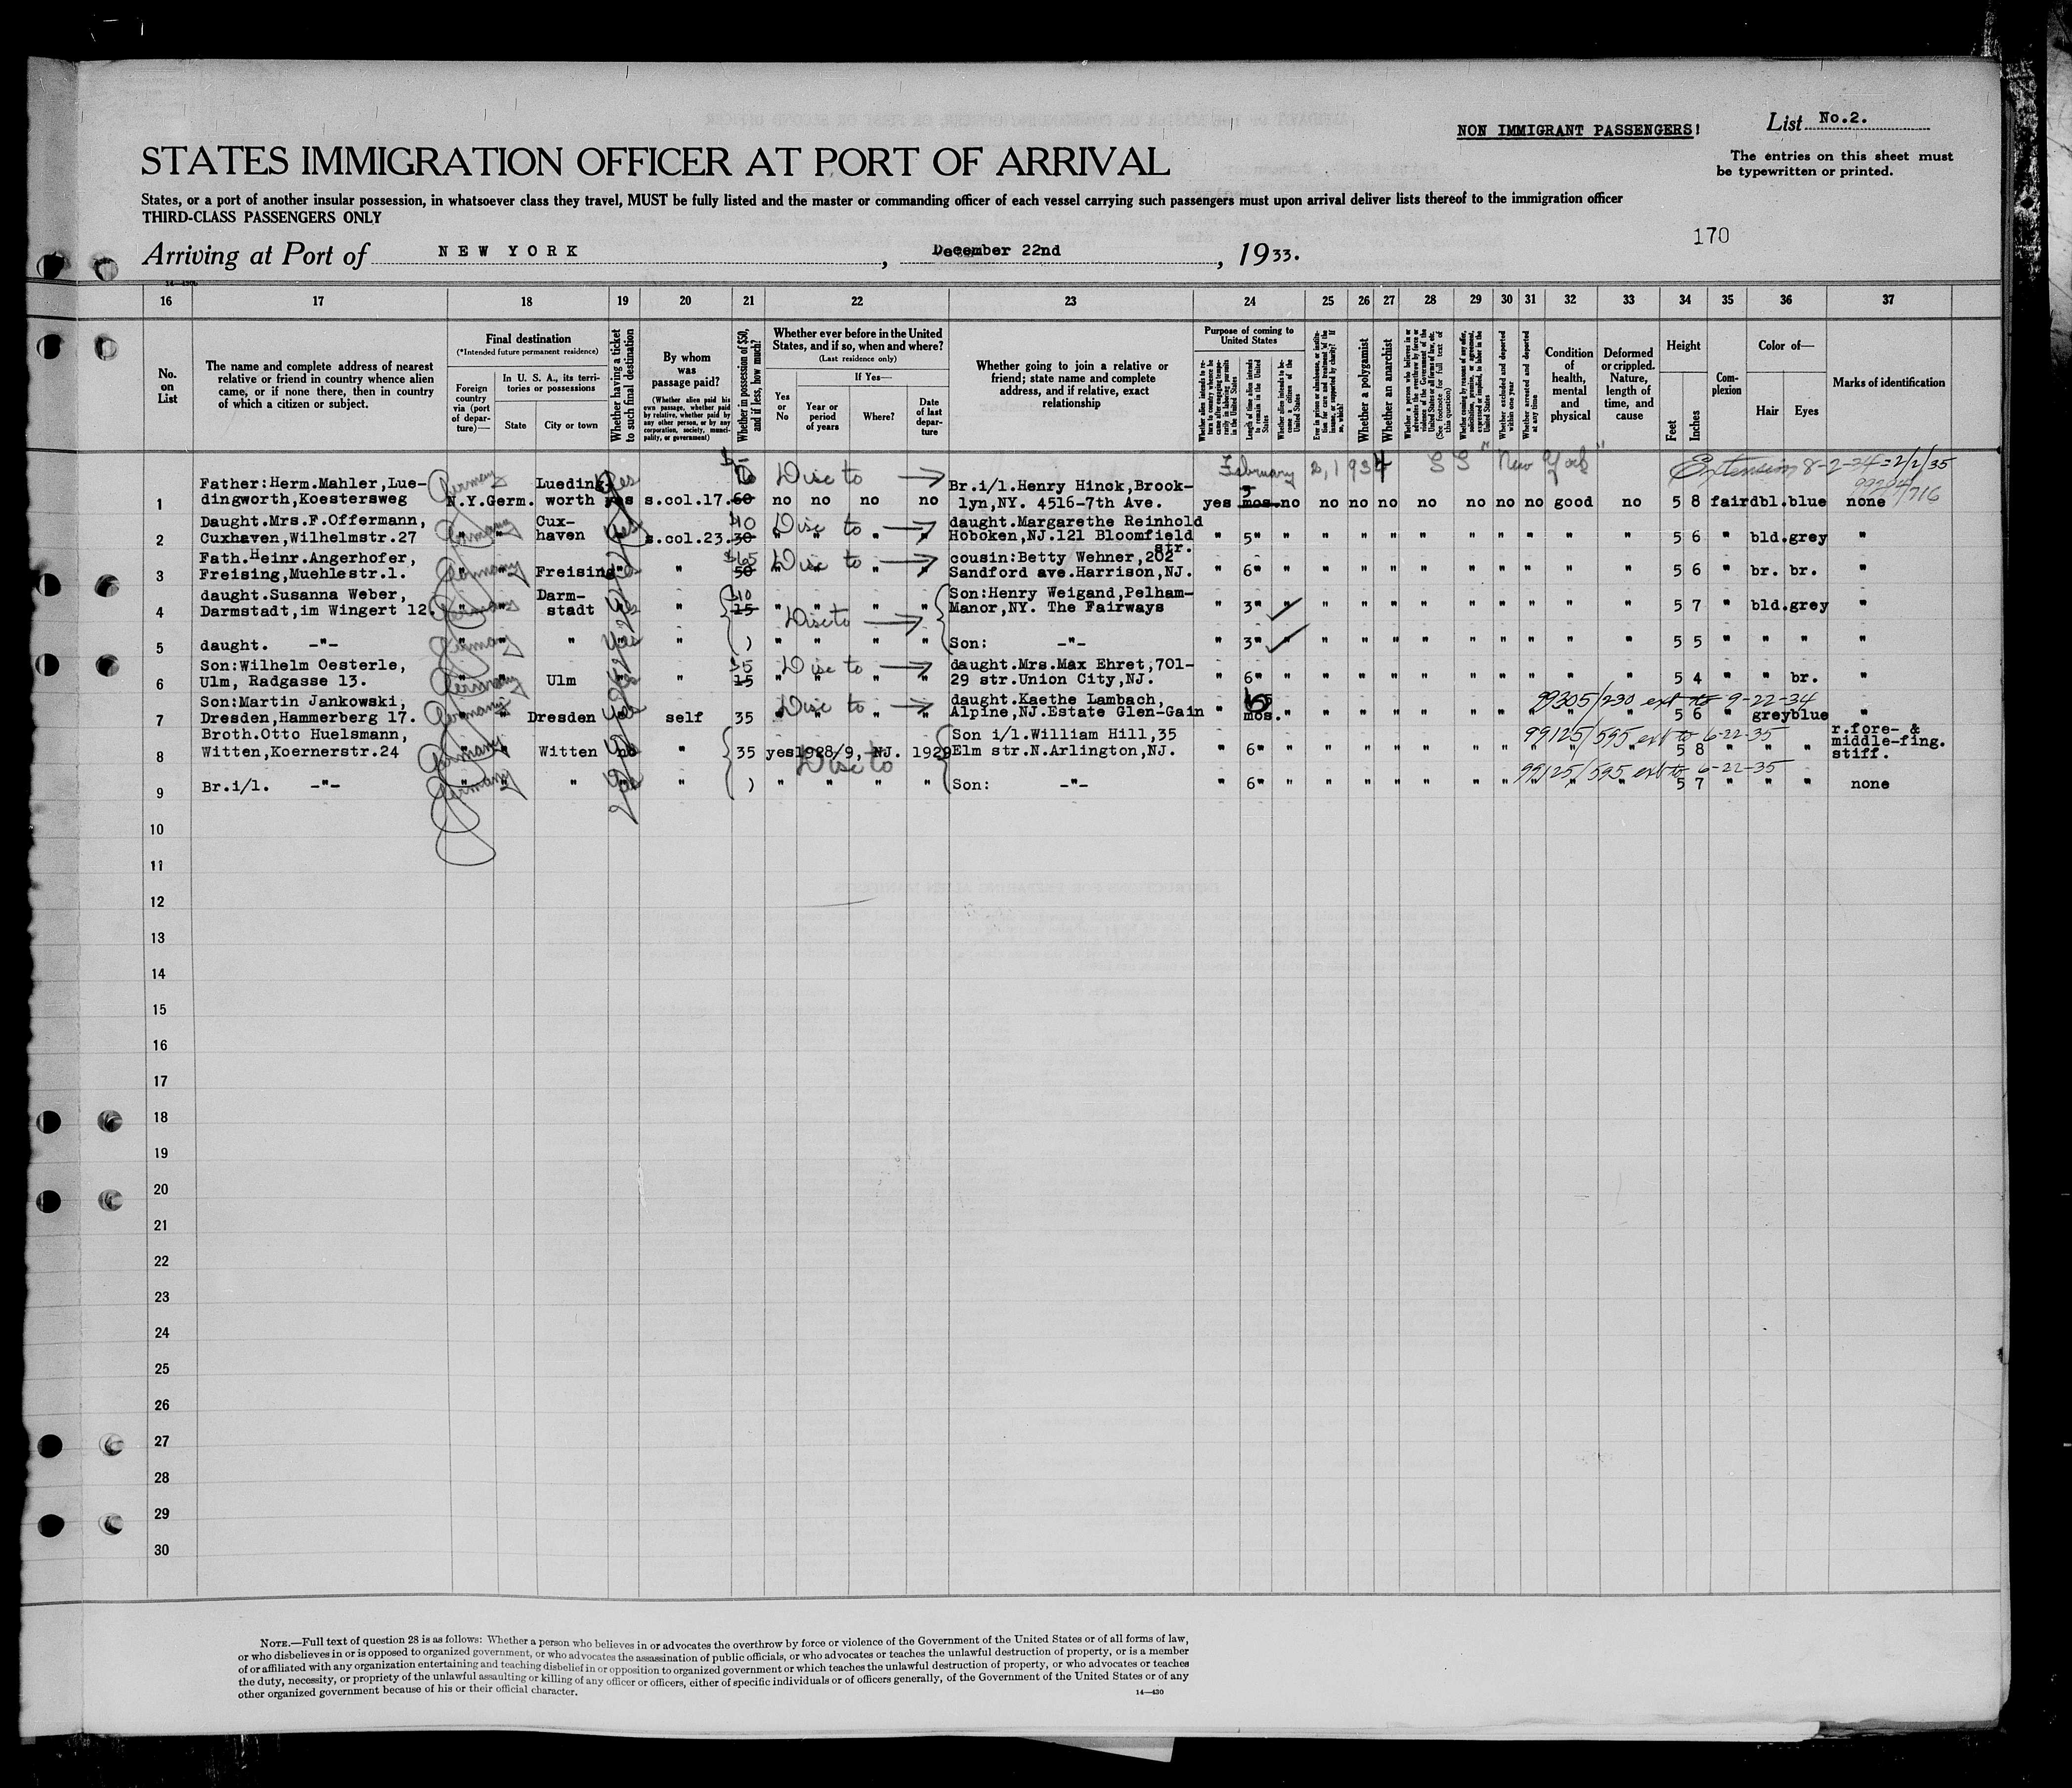 NON IMMIGRANT PASSENGERS!
List No.2.
STATES IMMIGRATION OFFICER AT PORT OF ARRIVAL
The entries on this sheet must
be typewritten or printed.
States, or a port of another insular possession, in whatsoever class they travel, MUST be fully listed and the master or commanding officer of each vessel carrying such passengers must upon arrival deliver lists thereof to the immigration officer
THIRD-CLASS PASSENGERS ONLY
170
Arriving at Port of NEW YORK, December 22nd, 1933.
16 17 18 19 20 21 22 23 24 25 26 27 28 29 30 31 32 33 34 35 36 37
No.
on
List
The name and complete address of nearest
relative or friend in country whence alien
came, or if none there, then in country
of which a citizen or subject.
Final destination
(*Intended future permanent residence)
Foreign
country
via (port
of depar-
ture)—
In U. S. A., its terri-
tories or possessions
State
City or town
Whether having a ticket
to such final destination
By whom
was
passage paid?
(Whether alien paid his
own passage, whether paid
by relative, whether paid by
any other person, or by any
corporation, society, munici-
pality, or government)
Whether in possession of $50,
and if less, how much?
Whether ever before in the United
States, and if so, when and where?
(Last residence only)
If Yes—
Yes
or
No
Year or
period
of years
Where?
Date
of last
depar-
ture
Whether going to join a relative or
friend; state name and complete
address, and if relative, exact
relationship
Purpose of coming to
United States
Length of time alien intends
to remain in the United
States
Whether alien intends to be-
come a citizen of the
United States
Whether a polygamist
Whether an anarchist
Whether excluded and deported
within one year
Whether arrested and deported
at any time
Condition
of
health,
mental
and
physical
Deformed
or crippled.
Nature,
length of
time, and
cause
Height
Feet
Inches
Com-
plexion
Color of—
Hair
Eyes
Marks of identification
February 2, 1934 SS "New York" Extension 8-2-34=2/2/35
Germany Yes Disc to
1 Father:Herm.Mahler,Lue-
dingworth,Koestersweg N.Y.Germ. Lueding
worth yes s.col.17. 60 no no no no Br.i/l.Henry Hinck,Brook-
lyn,NY. 4516-7th Ave. yes 5 mos. no no no no no no no no good no 5 8 fair dbl. blue none
2 Daught.Mrs.F.Offermann,
Cuxhaven,Wilhelmstr.27 Germany " " Cux-
haven yes s.col.23. $40 30 Disc to " " " " daught.Margarethe Reinhold
Hoboken,NJ.121 Bloomfield
str. " 5" " " " " " " " " " " 5 6 " bld.grey "
3 Fath.Heinr.Angerhofer,
Freising,Muehlestr.1. Germany " " Freising " " 50 Disc to " " " " cousin:Betty Wehner,202
Sandford ave.Harrison,NJ. " 6" " " " " " " " " " " 5 6 " br. br. "
4 daught.Susanna Weber,
Darmstadt,im Wingert 12. Germany " " Darm-
stadt Yes " 15 " " " " Disc to Son:Henry Weigand,Pelham-
Manor,NY. The Fairways " 3" " " " " " " " " " " 5 7 " bld.grey "
5 daught. -"- Germany " " " Yes " ) " " " " Son: -"- " 3" " " " " " " " " " " 5 5 " " " "
6 Son:Wilhelm Oesterle,
Ulm, Radgasse 13. Germany " " Ulm " " 15 Disc to " " " " daught.Mrs.Max Ehret,701-
29 str.Union City,NJ. " 6" " " " " " " " " " " 5 4 " " br. "
99305/230 ext to 9-22-34
7 Son:Martin Jankowski,
Dresden,Hammerberg 17. Germany " Dresden " self 35 Disc to " " " " daught.Kaethe Lambach,
Alpine,NJ.Estate Glen-Gain " mos. " " " " " " " " " " 5 6 " grey blue "
99125/595 ext to 6-22-35
8 Broth.Otto Huelsmann,
Witten,Koernerstr.24 Germany " " Witten no " 35 yes 1928/9, NJ. 1929 Disc to Son i/l.William Hill,35
Elm str.N.Arlington,NJ. " 6" " " " " " " " " " " 5 8 " " " r.fore- &
middle-fing.
stiff.
99125/595 ext to 6-22-35
9 Br.i/l. -"- Germany " " " yes " ) " " " " Son: -"- " 6" " " " " " " " " " " 5 7 " " " none
10
11
12
13
14
15
16
17
18
19
20
21
22
23
24
25
26
27
28
29
30
NOTE.—Full text of question 28 is as follows: Whether a person who believes in or advocates the overthrow by force or violence of the Government of the United States or of all forms of law,
or who disbelieves in or is opposed to organized government, or who advocates the assassination of public officials, or who advocates or teaches the unlawful destruction of property, or is a member
of or affiliated with any organization entertaining and teaching disbelief in or opposition to organized government or which teaches the unlawful destruction of property, or who advocates or teaches
the duty, necessity, or propriety of the unlawful assaulting or killing of any officer or officers, either of specific individuals or of officers generally, of the Government of the United States or of any
other organized government because of his or their official character.
14—430